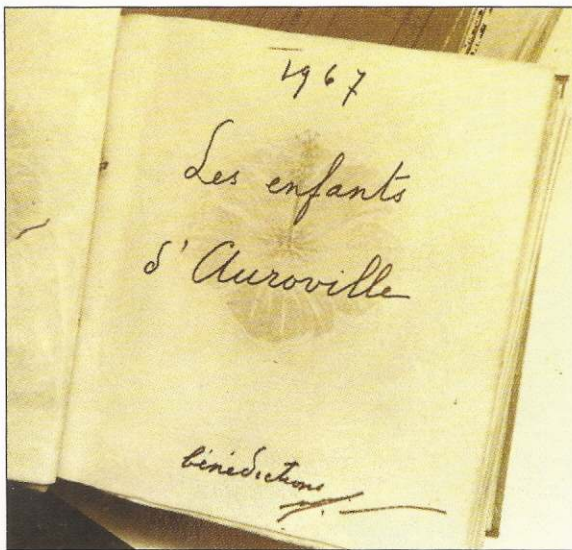 1967
Les enfants
d'Auroville
bénédictions